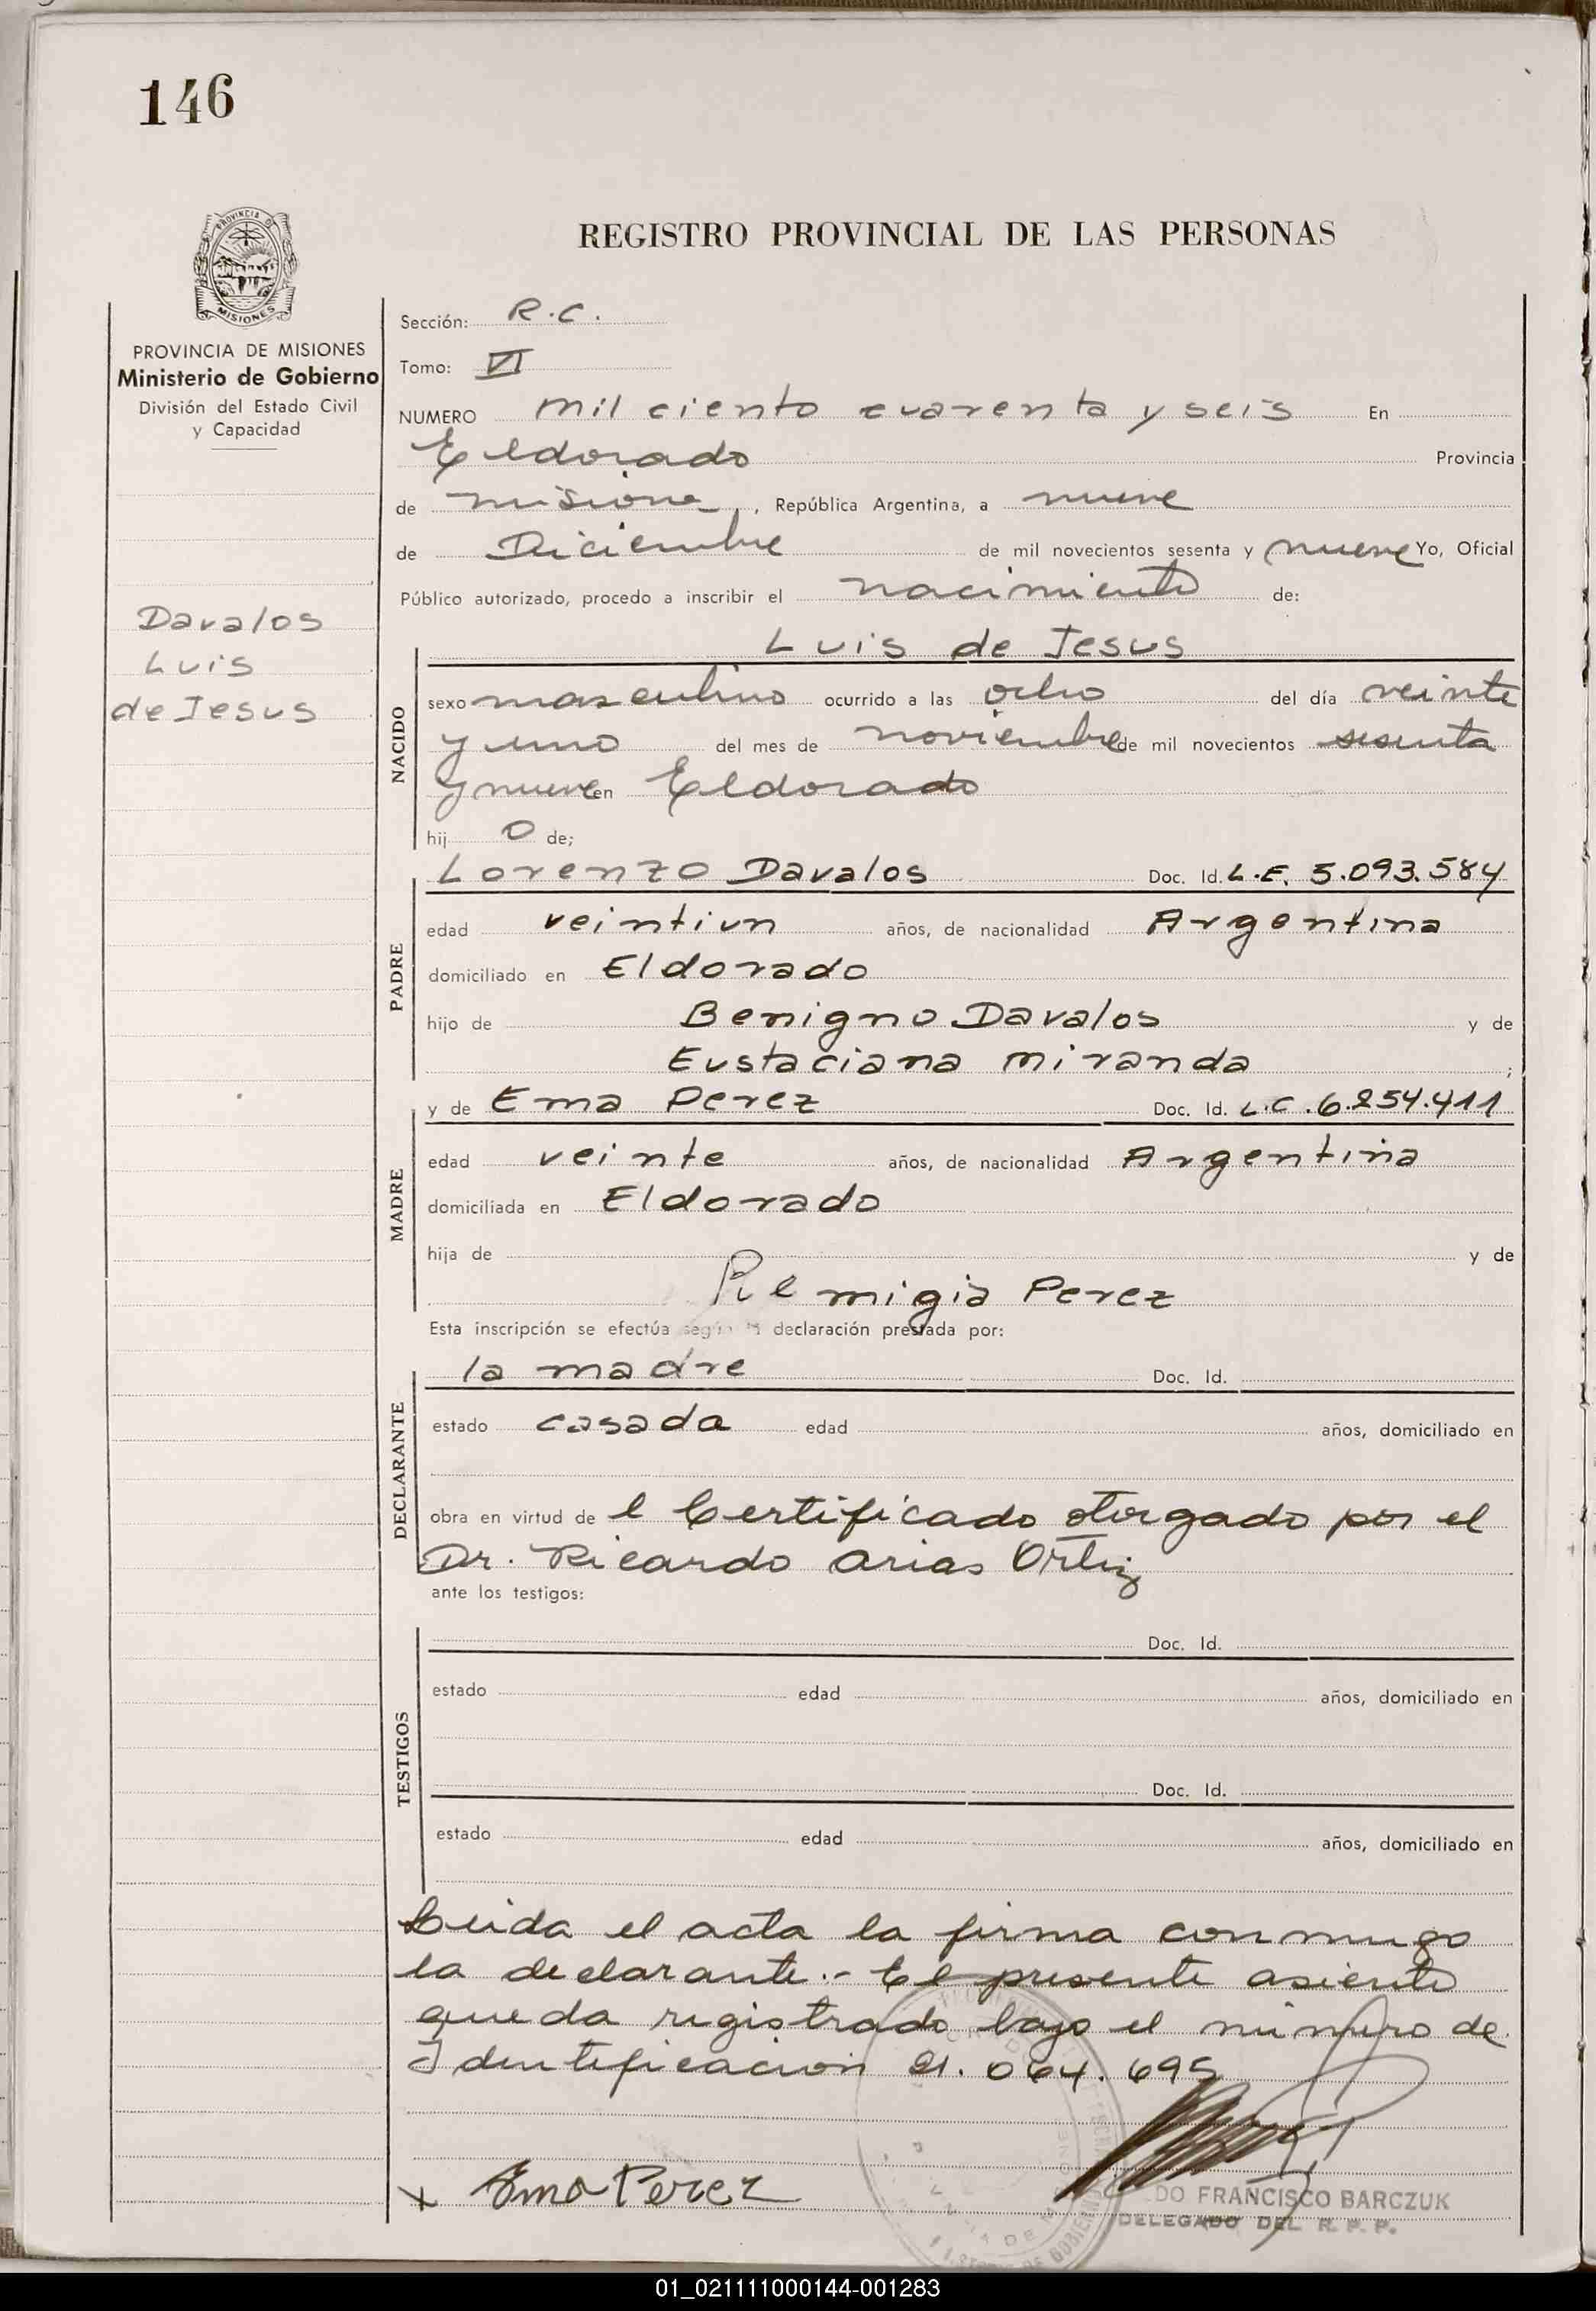 146
PROVINCIA DE
MISIONES
PROVINCIA DE MISIONES
Ministerio de Gobierno
División del Estado Civil
y Capacidad
Davalos
Luis
de Jesus
REGISTRO PROVINCIAL DE LAS PERSONAS
Sección: R.C.
Tomo: VI
NUMERO mil ciento cuarenta y seis En
Eldorado Provincia
de misiones, República Argentina, a nueve
de Diciembre de mil novecientos sesenta y nueve Yo, Oficial
Público autorizado, procedo a inscribir el nacimiento de:
Luis de Jesus
NACIDO
sexo masculino ocurrido a las ocho del día veinte
y uno del mes de noviembre de mil novecientos sesenta
y nueve en Eldorado
hij o de;
Lorenzo Davalos Doc. Id. L.E. 5.093.584
PADRE
edad veintiun años, de nacionalidad Argentina
domiciliado en Eldorado
hijo de Benigno Davalos y de
Eustaciana Miranda ;
y de Ema Perez Doc. Id. L.C. 6.254.411
MADRE
edad veinte años, de nacionalidad Argentina
domiciliada en Eldorado
hija de y de
Remigia Perez
Esta inscripción se efectúa según la declaración prestada por:
la madre Doc. Id.
DECLARANTE
estado casada edad años, domiciliado en
obra en virtud de l Certificado otorgado por el
Dr. Ricardo Arias Ortiz
ante los testigos:
Doc. Id.
TESTIGOS
estado edad años, domiciliado en
Doc. Id.
estado edad años, domiciliado en
Leida el acta la firma conmigo
la declarante.- El presente asiento
queda registrado bajo el número de
Identificacion 21.064.695
x Ema Perez
DO FRANCISCO BARCZUK
DELEGADO DEL R. P. P.
01_021111000144-001283